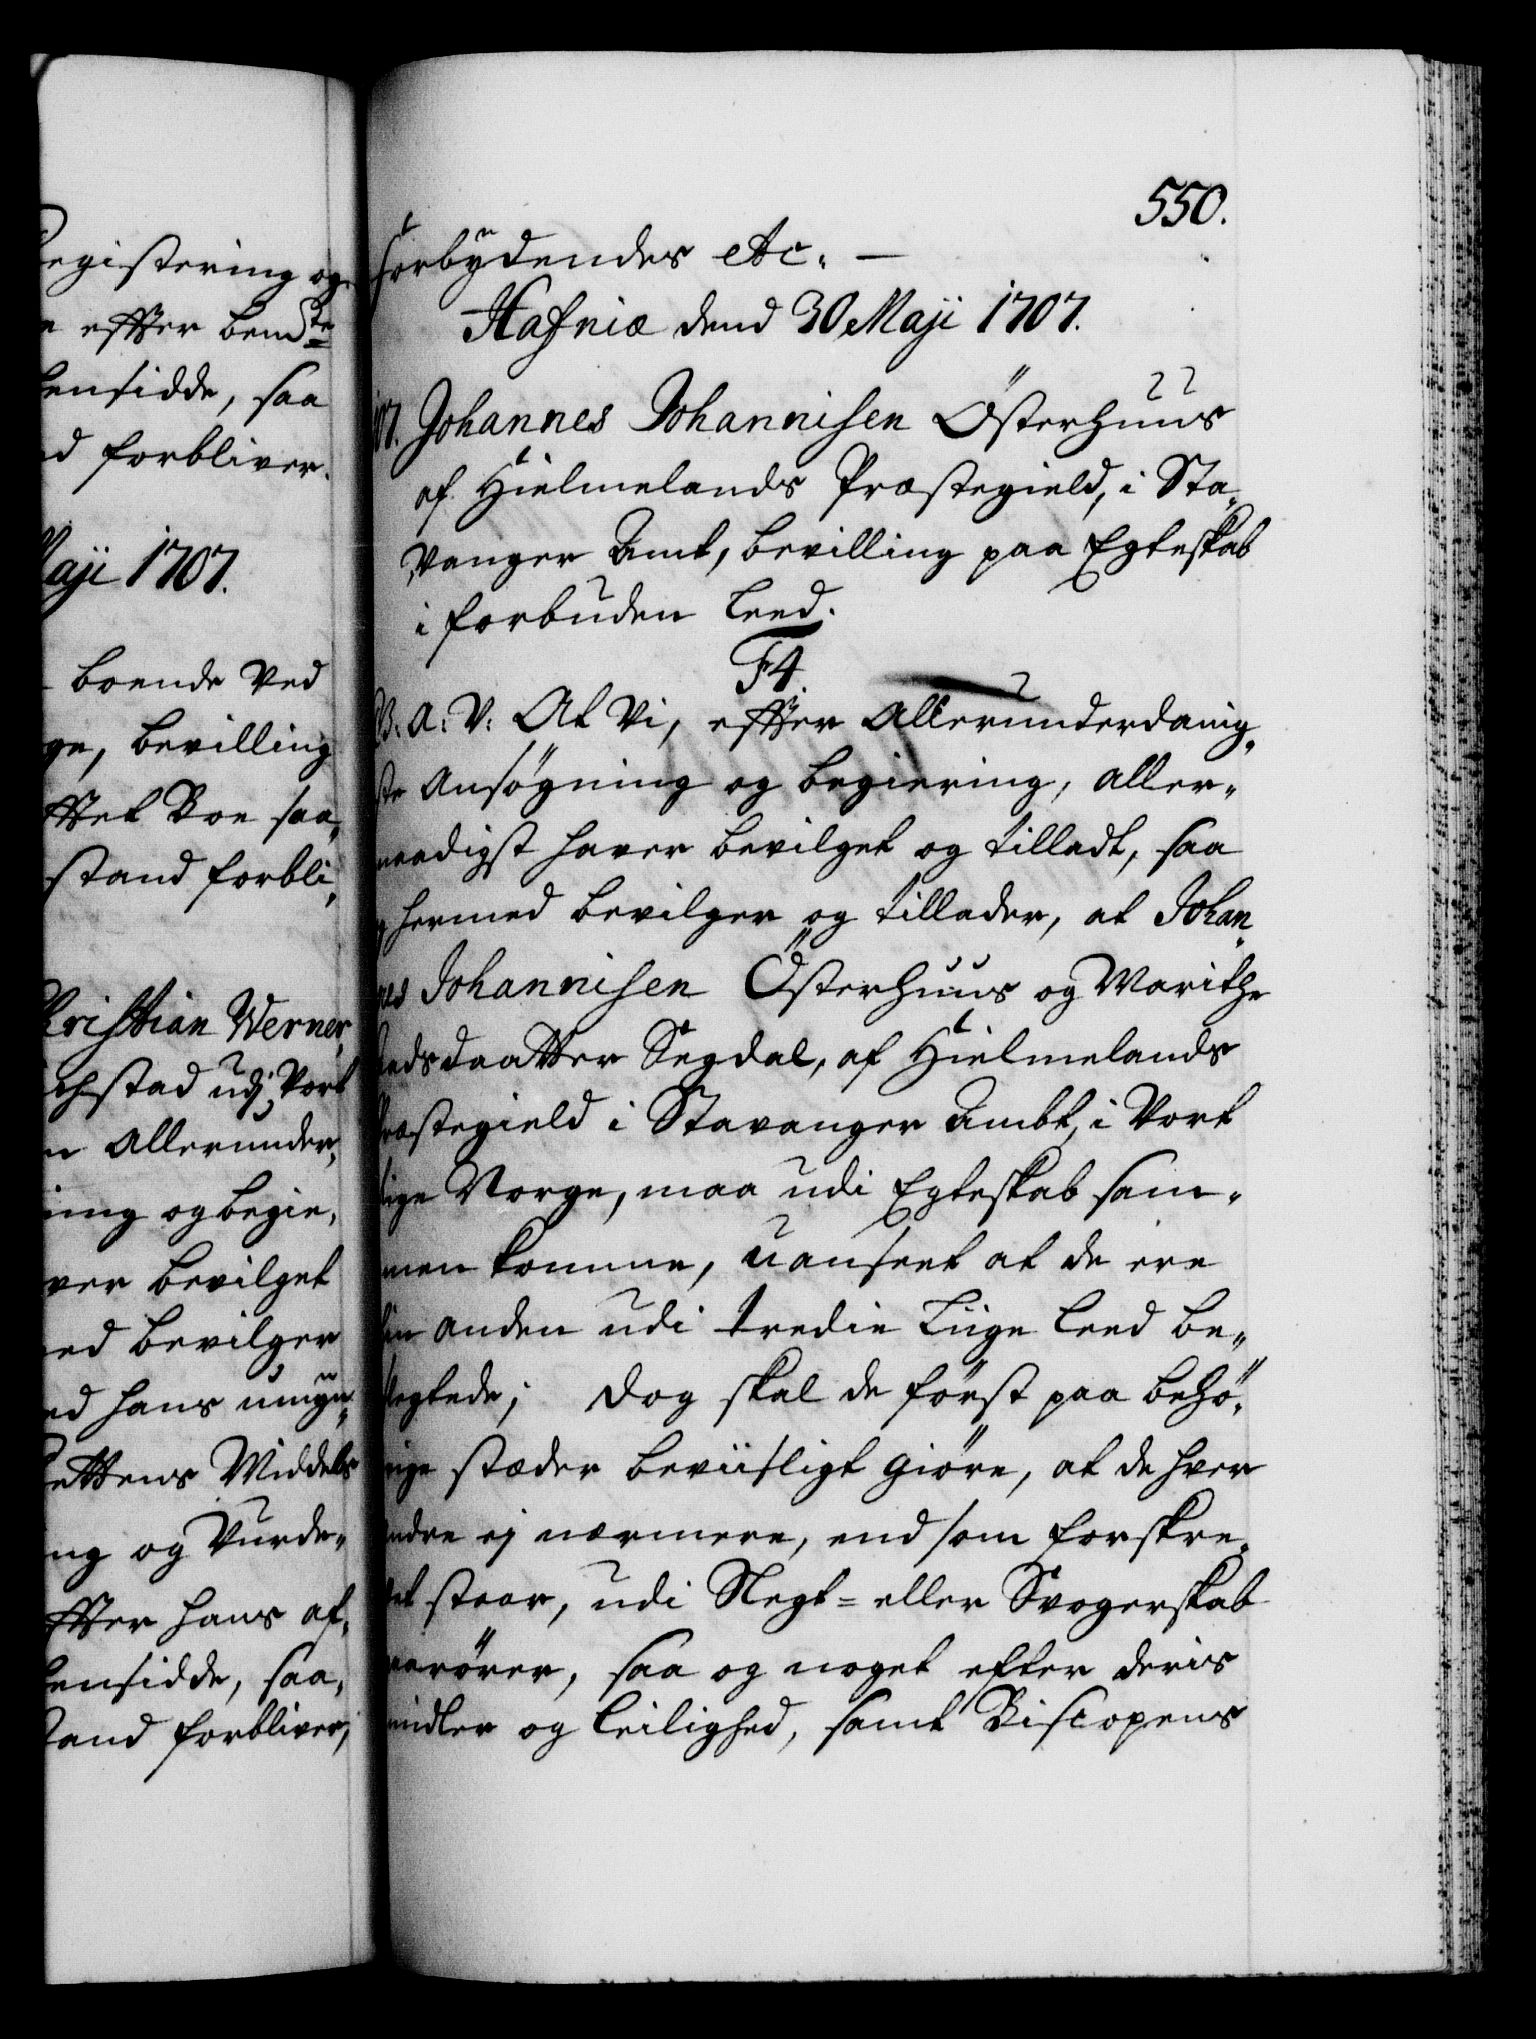 egistering og
effter bend^te
ensidde, saa
d forbliver.
aji 1707.
boende ved
ge, bevilling
fftet Boe saa„
stand forbli„
hristian Werner
chstad udj Vort
n Allerunder„
ning og begie„
ver bevilget
ed bevilger
ed hans umyn„
ettens Middels
ng og Vurde„
ffter hans af„
ensidde, saa„
tand forbliver,
550.
forbydendes etc. —
Hafniæ dend 30 Maji 1707.
Johannes Johannisen Österhuus
af Hielmelands Præstegield, i Sta„
vanger Amt, bevilling paa Egteskab
i forbuden Leed.
F4.
G. A. V. At Vi, effter Allerunderdanig„
ste Ansøgning og begiering, aller„
naadigst haver bevilget og tilladt, saa
hermed bevilger og tillader, at Johan„
nes Johannisen Österhuus og Marithe
daatter Segdal, af Hielmelands
ræstegield i Stavanger Ambt, i Vort
ige Norge, maa udi Egteskab sam„
men komme, uanseet at de ere
in anden udi tredie Liige Leed be„
legtede; Dog skal de först paa behö„
rige stæder beviisligt giöre, at de hver
andre ej nærmere, end som forskre„
vet staar, udi Slegt- eller Svogerskab
paarörer, saa og noget efter deris
midler og leilighed, samt Biscopens